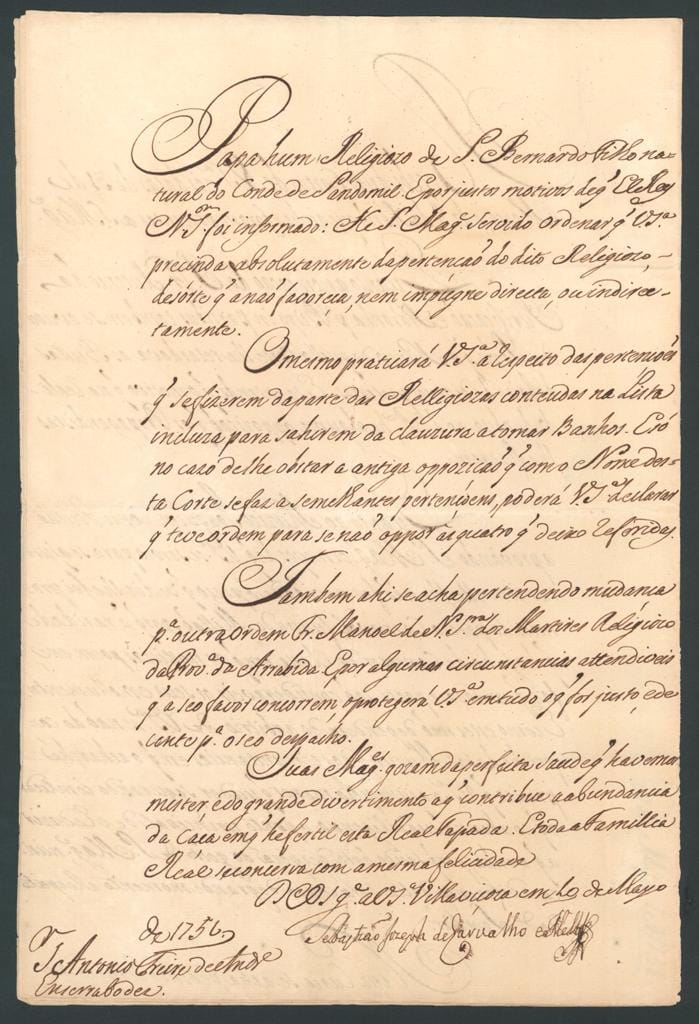 Papa hum Religiozo de S. Bernardo Filho na-
tural do Conde de Sandomil. E por justos motivos de q̃ ElRey
N. Sr. foi informado: He S. Mag.e servido ordenar q̃ V.S.a
precinda absolutamente da pertencaõ do dito Religiozo,
de sórte q̃ a naõ favoreça, nem impugne directa, ou indirec-
tamente.
O mesmo praticará V.S.a a respeito das pertençoẽs
q̃ se fizerem da parte das Relligiozas conteudas na Lista
incluza, para sahirem da clauzura a tomar Banhos. E só
no cazo de lhe obstar a antiga oppoziçaõ q̃ com o Nome des-
ta Corte se faz a semelhantes pertendens, poderá V.S.a declarar
q̃ teve ordem para se naõ oppor as quatro q̃ deixo referidas.
Tambem ahi se acha pertendendo mudança
p.a outra Ordem Fr. Manoel de N. Sr.a dos Martires Religiozo
da Prov.a da Arrabida. E por algumas circunstancias attendiveis
q̃ a seo favor concorrem, o protegerá V.S.a em tudo o q̃ for justo, e de-
cente p.a o seo despacho.
Suas Mag.es gozam da perfeita saude q̃ havemos
mister, e do grande divertimento a q̃ contribue a abundancia
da Caça em q̃ he fertil esta Real Tapada. E toda a Famillia
Real se conserva com a mesma felicidade
D.s g.e a V.S.a Villa viçoza em 10 de Mayo
de 1756.
Sebastiaõ Joseph de Carvalho e Mello
Sr. Antonio Freire de Andr.
Enserrabodes.